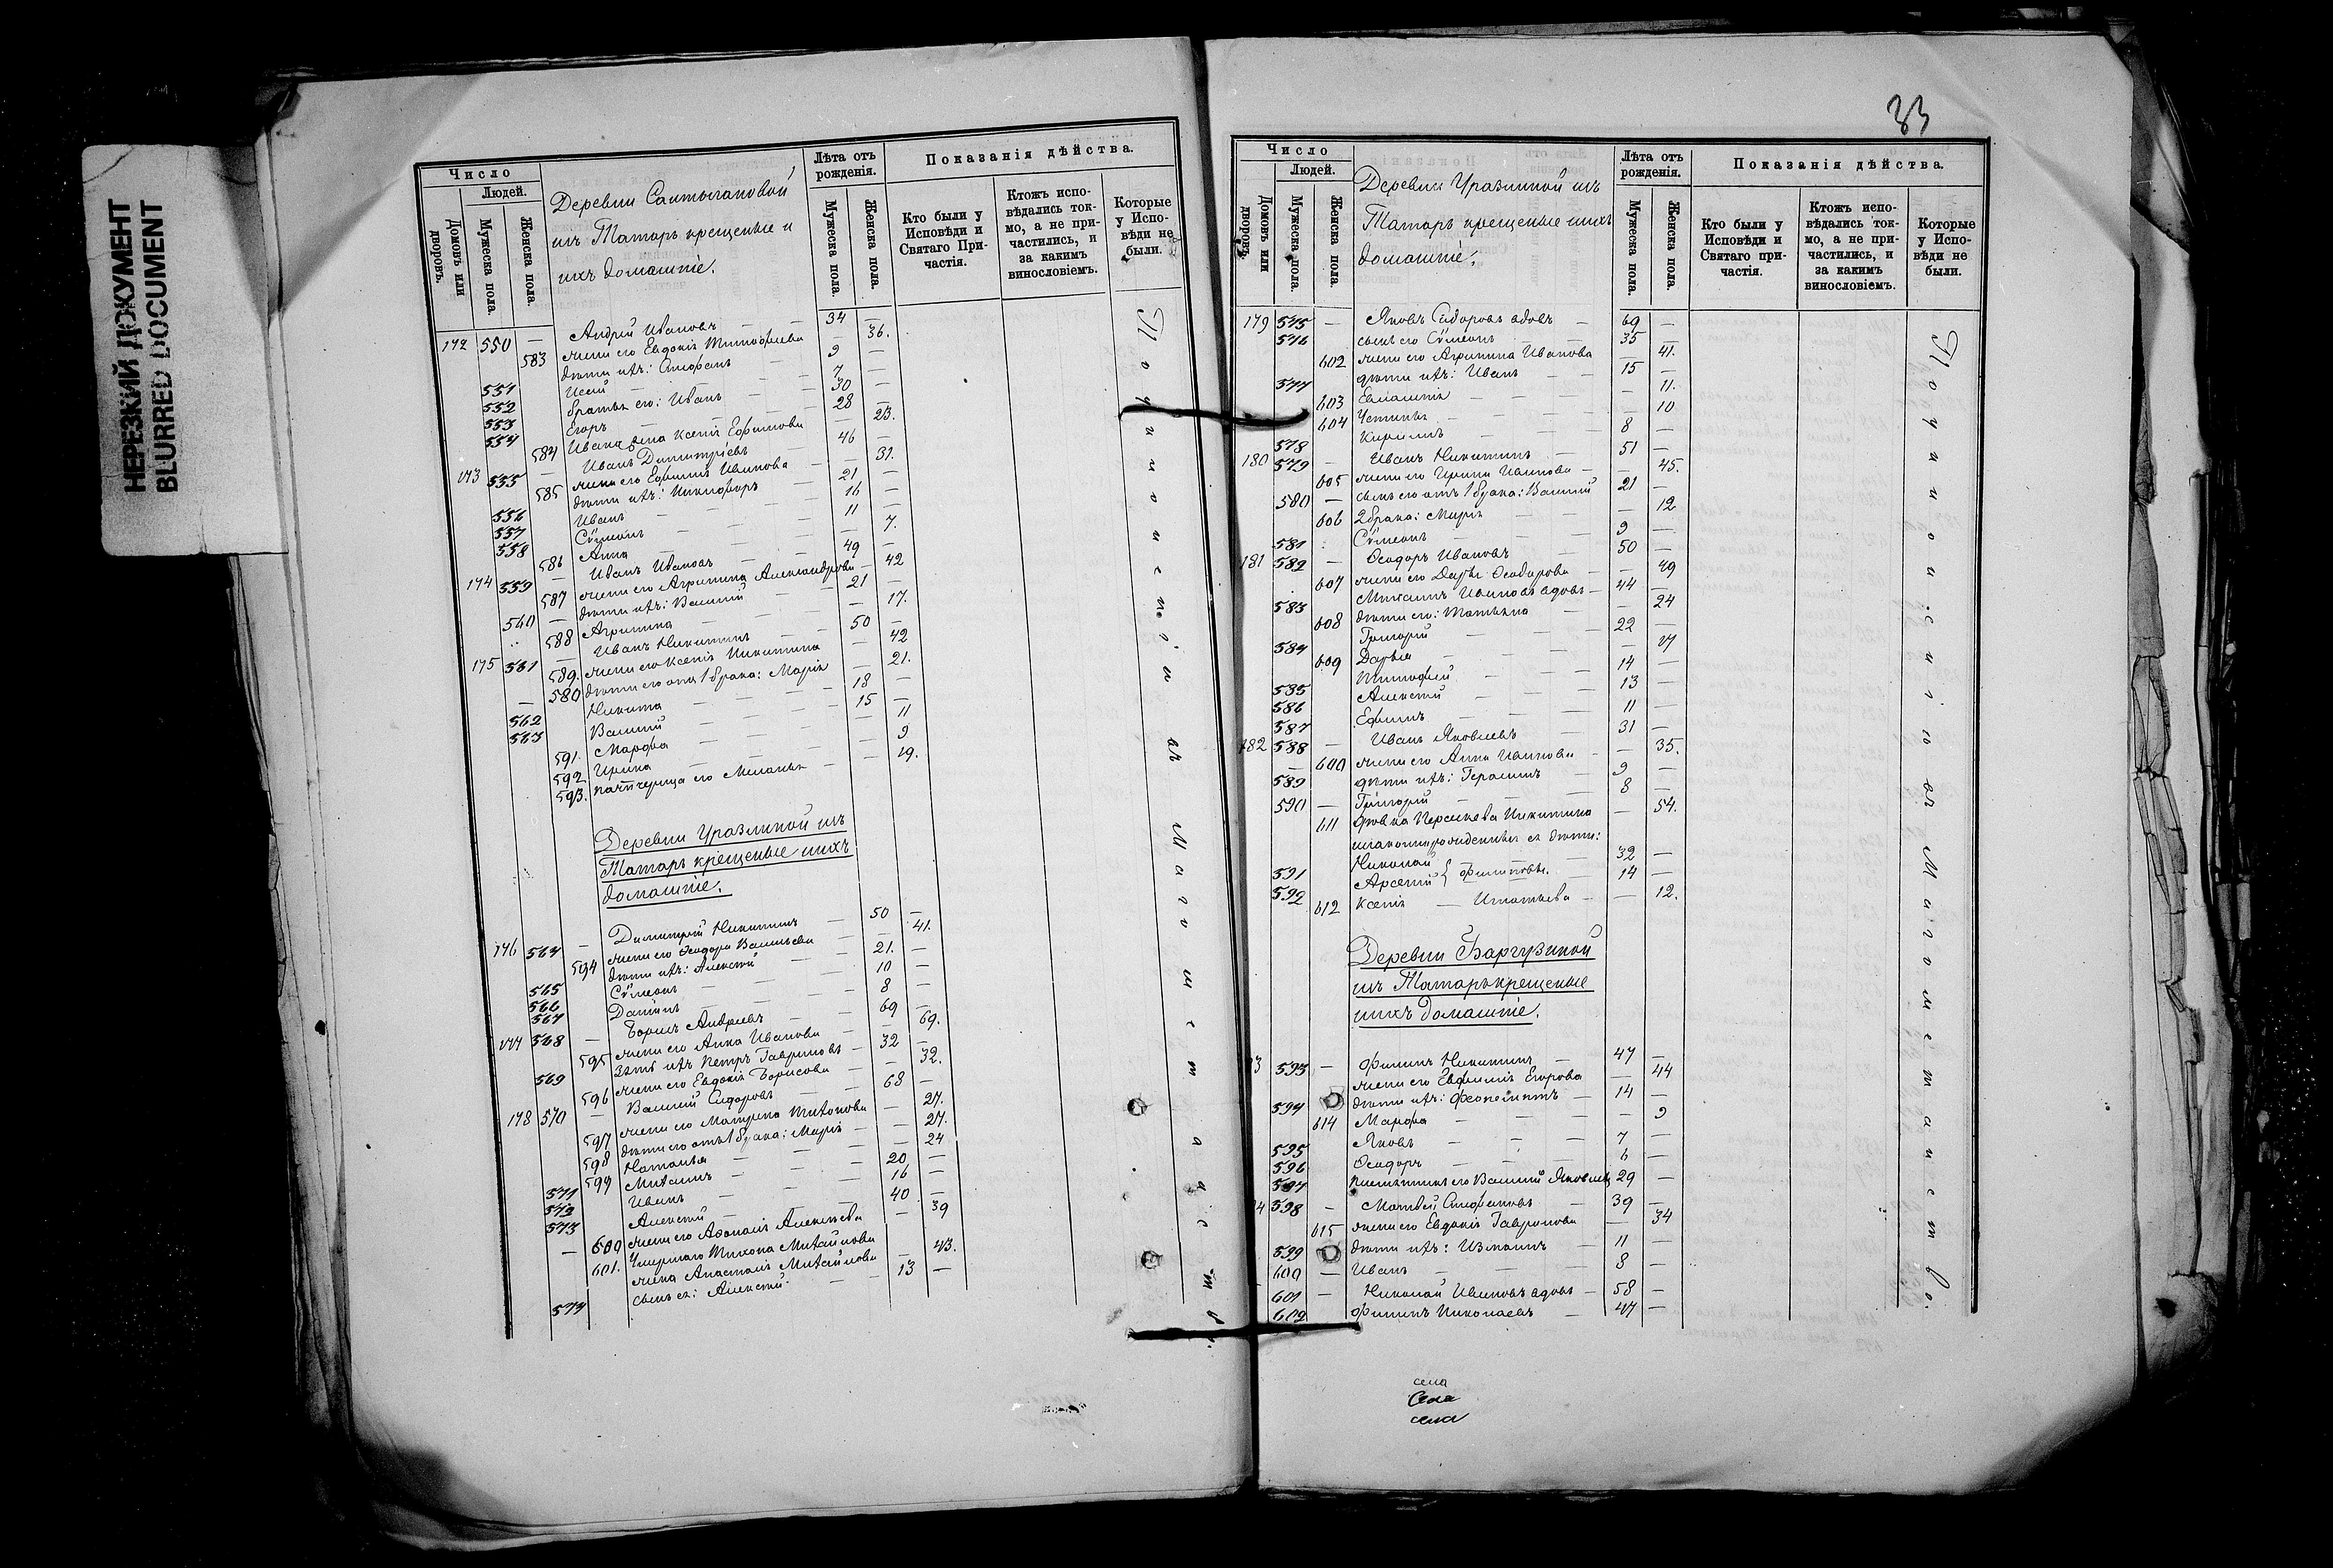 НЕРЕЗКИЙ ДОКУМЕНТ
BLURRED DOCUMENT
Число
Людей.
Домовъ или дворовъ.
Мужеска пола.
Женска пола.
Деревни Салтыгановой
изъ Татаръ крещеные и
ихъ домашніе.
Лѣта отъ рожденія.
Мужеска пола.
Женска пола.
Показанія дѣйства.
Кто были у Исповѣди и Святаго При-частія.
Ктожъ испо-вѣдались ток-мо, а не при-частились, и за какимъ винословіемъ.
Которые у Испо-вѣди не были.
172 550 — Андрей Ивановъ — 34 —
583 жена его Евдокія Тимофеева — 36.
дѣти ихъ: Стефанъ 9 —
551 Исай — 7 —
552 братья его: Иванъ — 30 —
553 Егоръ — 28 —
554 584 Ивана жена Ксенія Ефимова — 23.
173 555 — Иванъ Димитріевъ 46 —
585 жена его Ефимія Иванова — 31.
дѣти ихъ: Никифоръ 21 —
556 Иванъ — 16 —
557 Сѵмеонъ — 11 —
558 586 Анна — 7.
174 559 — Иванъ Ивановъ — 49 —
587 жена его Агрипина Александрова — 42
560 — дѣти ихъ: Василій — 21 —
588 Агрипина — 17.
175 561 — Иванъ Никитинъ — 50 —
589. жена его Ксенія Никитина — 42
580 дѣти его отъ 1 брака: Марія — 21.
562 Никита — 18 —
563 Василій — 15 —
591. Марфа — 11
592 Ирина — 9
593. падчерица его Меланья — 19.
Деревни Уразлиной изъ
Татаръ крещеные и ихъ
домашніе.
176 564 — Димитрій Никитинъ — 50 —
594 жена его Ѳеодора Васильева — 41.
565 дѣти ихъ: Алексѣй — 21. —
566 Сѵмеонъ — 10 —
567 Даніилъ — 8 —
177 568 — Борисъ Андреевъ — 69 —
595 жена его Анна Иванова — 69.
569 зять ихъ Петръ Гавриловъ — 32 —
596 жена его Евдокія Борисова — 32.
178 570 — Василій Сидоровъ — 68 —
597 жена его Матрена Тихонова — 27.
598 дѣти его отъ 1 брака: Марія — 27.
599 Наталья — 24
571 Михаилъ — 20 —
572 Иванъ — 16 —
573 Алексѣй — 40 —
600 жена его Аѳонасія Алексѣева — 39
601. Умершаго Тихона Михайлова
жена Анастасія Михайлова — 43.
574 сынъ ея: Алексѣй. — 13 —
По уклоненіи въ Магометанство.
33
Число
Людей.
Домовъ или дворовъ.
Мужеска пола.
Женска пола.
Деревни Уразлиной изъ
Татаръ крещеные и ихъ
домашніе.
Лѣта отъ рожденія.
Мужеска пола.
Женска пола.
Показанія дѣйства.
Кто были у Исповѣди и Святаго при-частія.
Ктожъ испо-вѣдались ток-мо, а не при-частились, и за какимъ винословіемъ.
Которые у Испо-вѣди не были.
179 575 — Яковъ Сидоровъ вдовъ — 69 —
576 сынъ его Сѵмеонъ — 35 —
602 жена его Агрипина Иванова — 41.
577 дѣти ихъ: Иванъ — 15 —
603 — 11.
604 — 10
578 Кириллъ — 8 —
180 579 — Иванъ Никитинъ — 51 —
605 жена его Ирина Иванова — 45.
580 — сынъ его отъ 1 брака: Василій 21 —
606 2 брака: Марія — 12
581 Сѵмеонъ — 9 —
181 582 — Ѳеодоръ Ивановъ — 50 —
607 жена его Дарья Ѳеодорова — 49
583 Михаилъ Ивановъ вдовъ — 44 —
608 дѣти его: Татьяна — 24
584 Григорій — 22 —
609 Дарья — 17
585 Тимофей — 14 —
586 Алексѣй — 13 —
587 Ефимъ — 11 —
182 588 — Иванъ Яковлевъ — 31 —
600 жена его Анна Иванова — 35.
589 дѣти ихъ: Герасимъ — 9 —
590 — Григорій — 8 —
611 дѣвка Никитина — 54.
незаконнорожденные ея дѣти:
591 Николай — 32 —
592 Арсеній } Филиповы. — 14 —
612 Ксенія — Игнатьева — 12.
Деревни Баргузиной
изъ Татаръ крещеные
и ихъ домашніе.
3 593 — Филипъ Никитинъ — 47 —
жена его Евфимія Егорова — 44
594 дѣти ихъ: Феопемптъ — 14 —
614 Марфа — 9
595 Яковъ — 7 —
596 Ѳеодоръ — 6 —
597 племянникъ его Василій Яковлевъ 29 —
4 598 — Матвей Стефановъ — 39 —
615 жена его Евдокія Гавриловна — 34
599 дѣти ихъ: Измаилъ — 11 —
600 — Иванъ — 8 —
601 — Николай Ивановъ вдовъ — 58 —
602 Филипъ Николаевъ — 47 —
села
Села
села